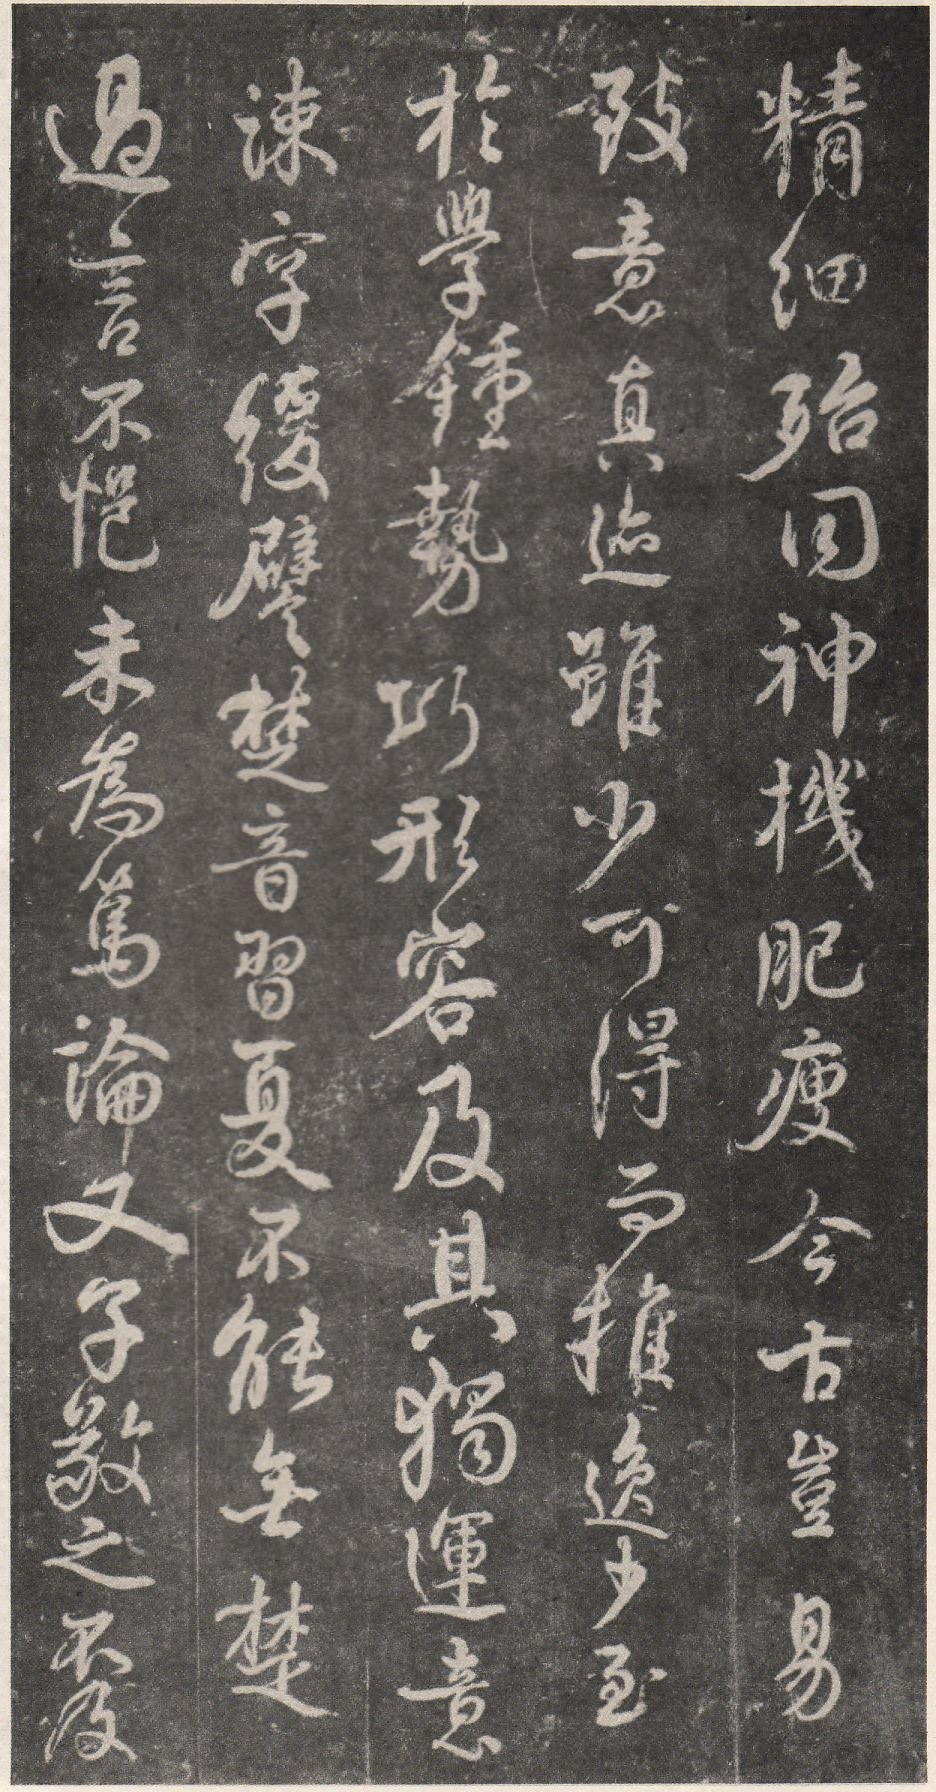 精細殆同神機肥瘦今古豈易
致意真迹雖少可得而推逸少至
於學鍾勢巧形容及其獨運意
疎字緩譬楚音習夏不能無楚
過言不悒未為篤論又子敬之不